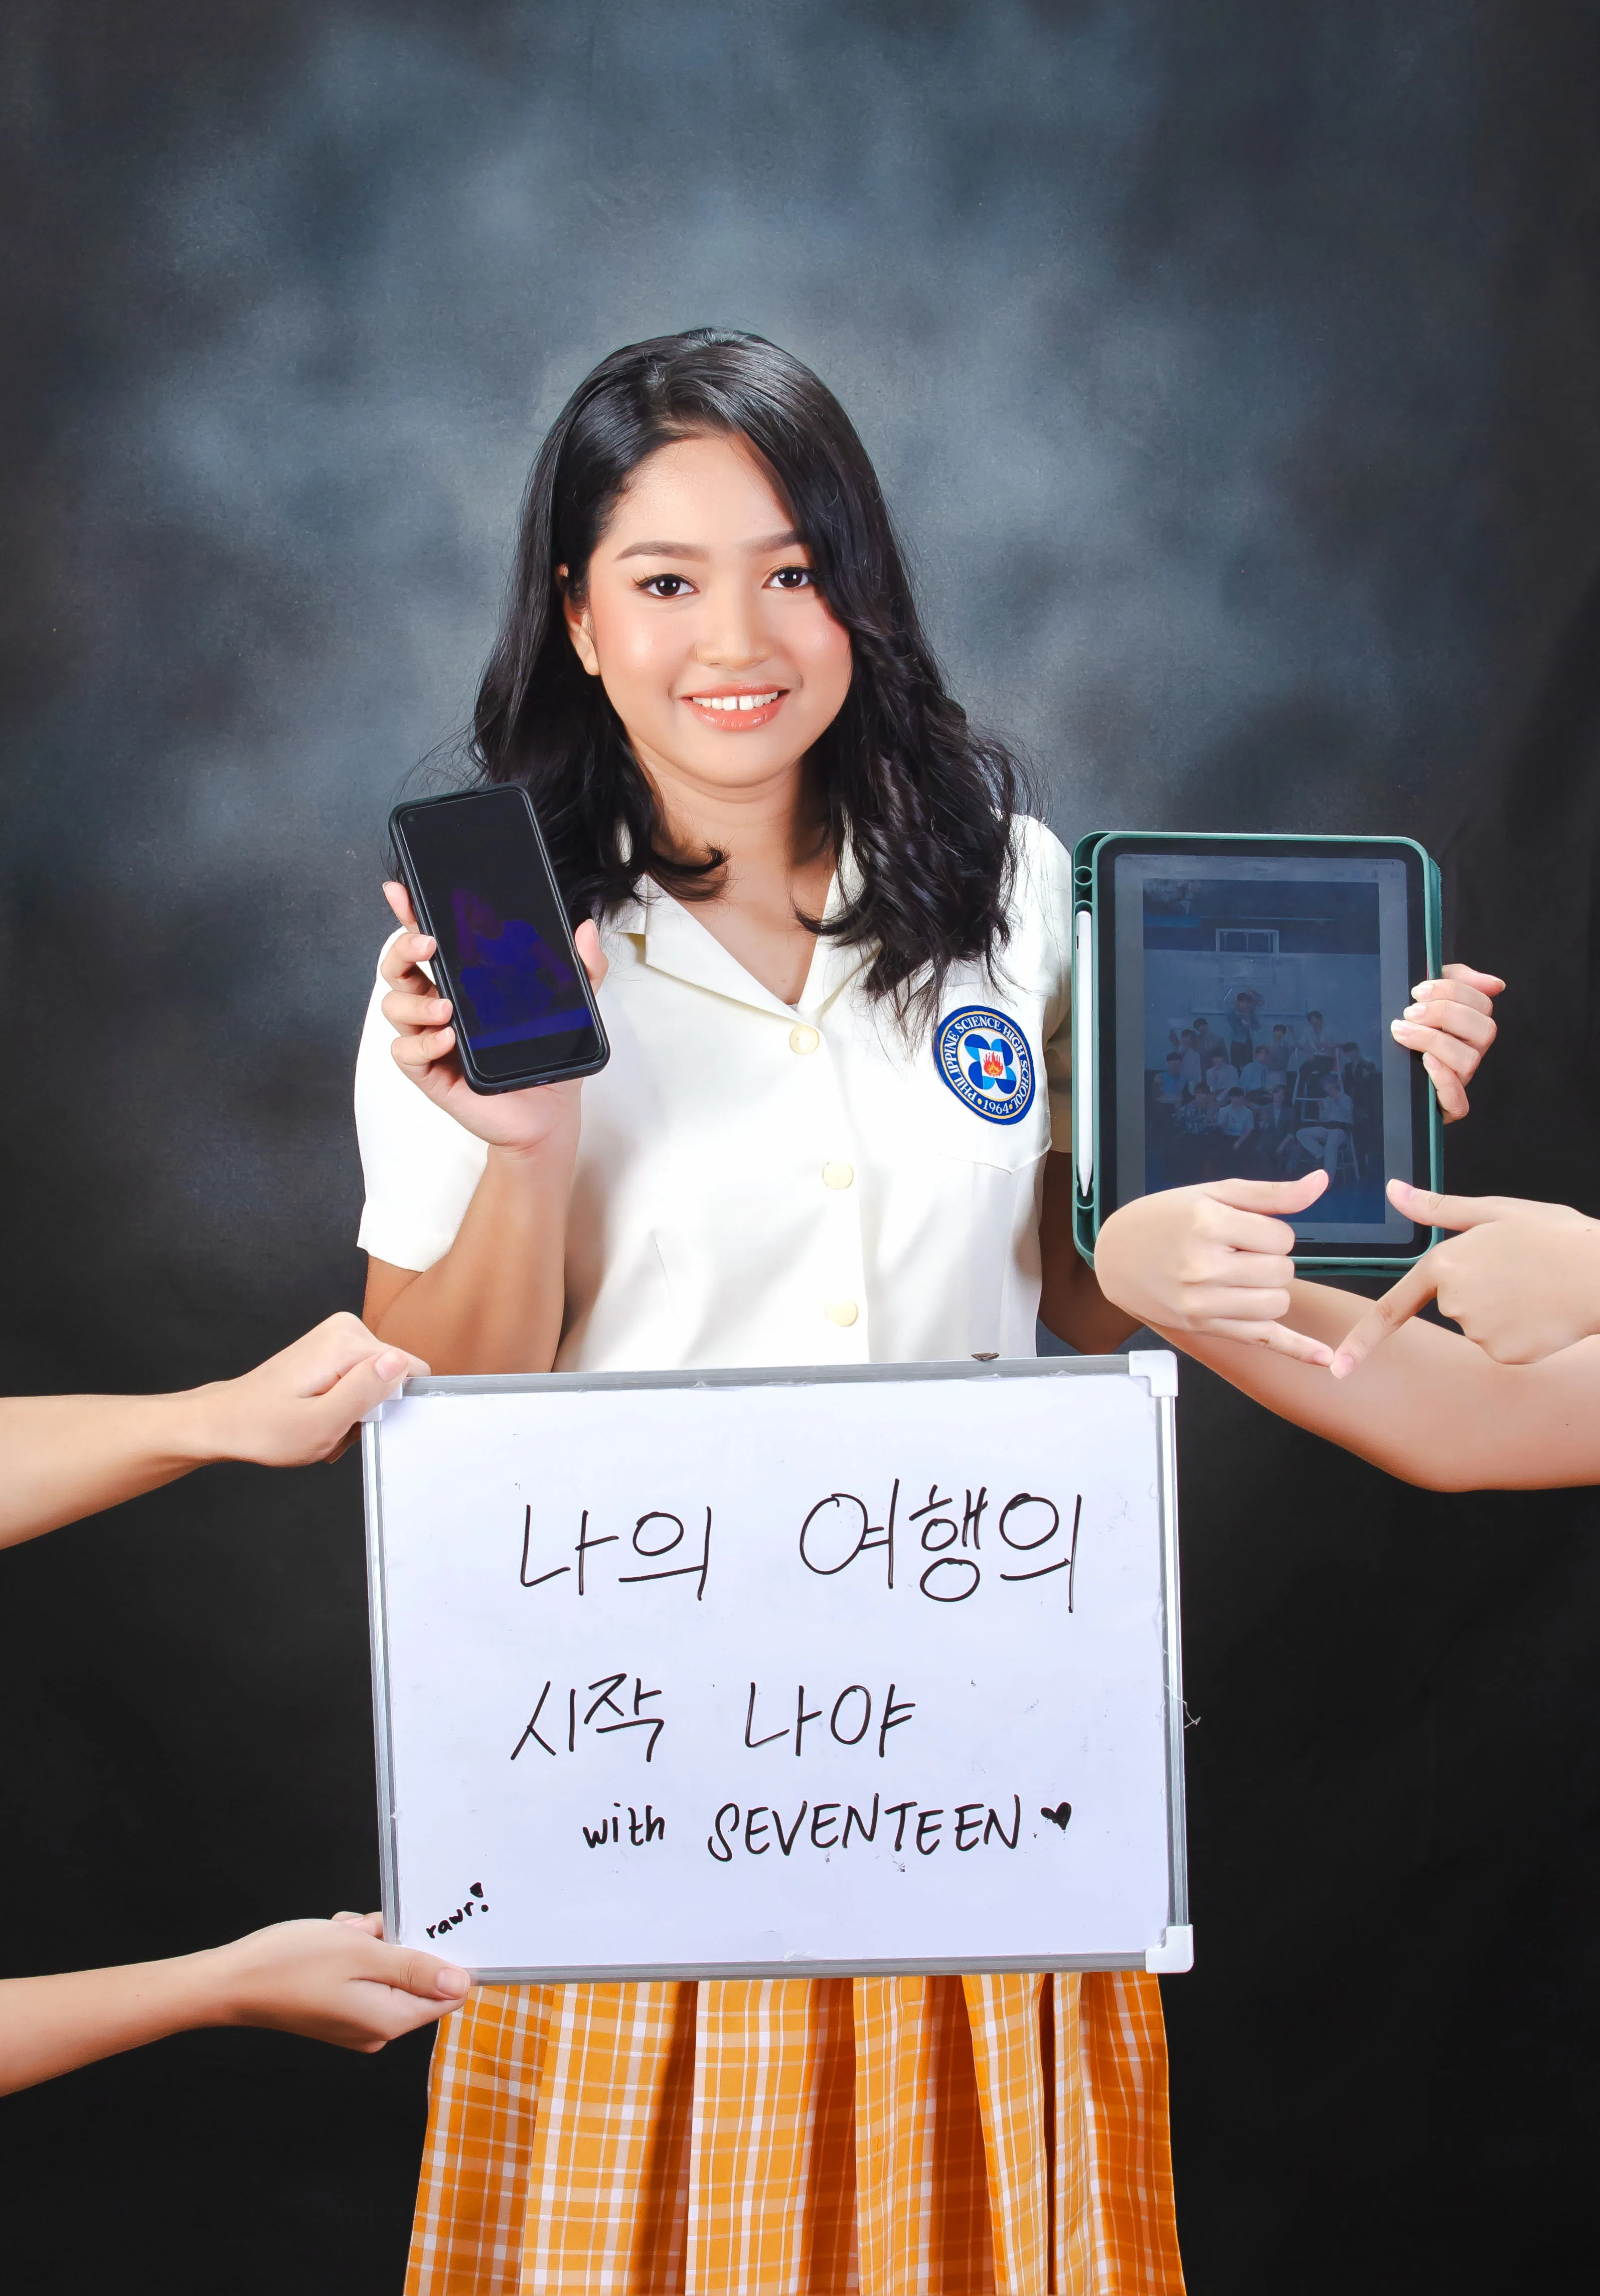 PHILIPPINE SCIENCE HIGH SCHOOL
• 1964 •
나의 여행의
시작 나야
with SEVENTEEN ♥
rawr!